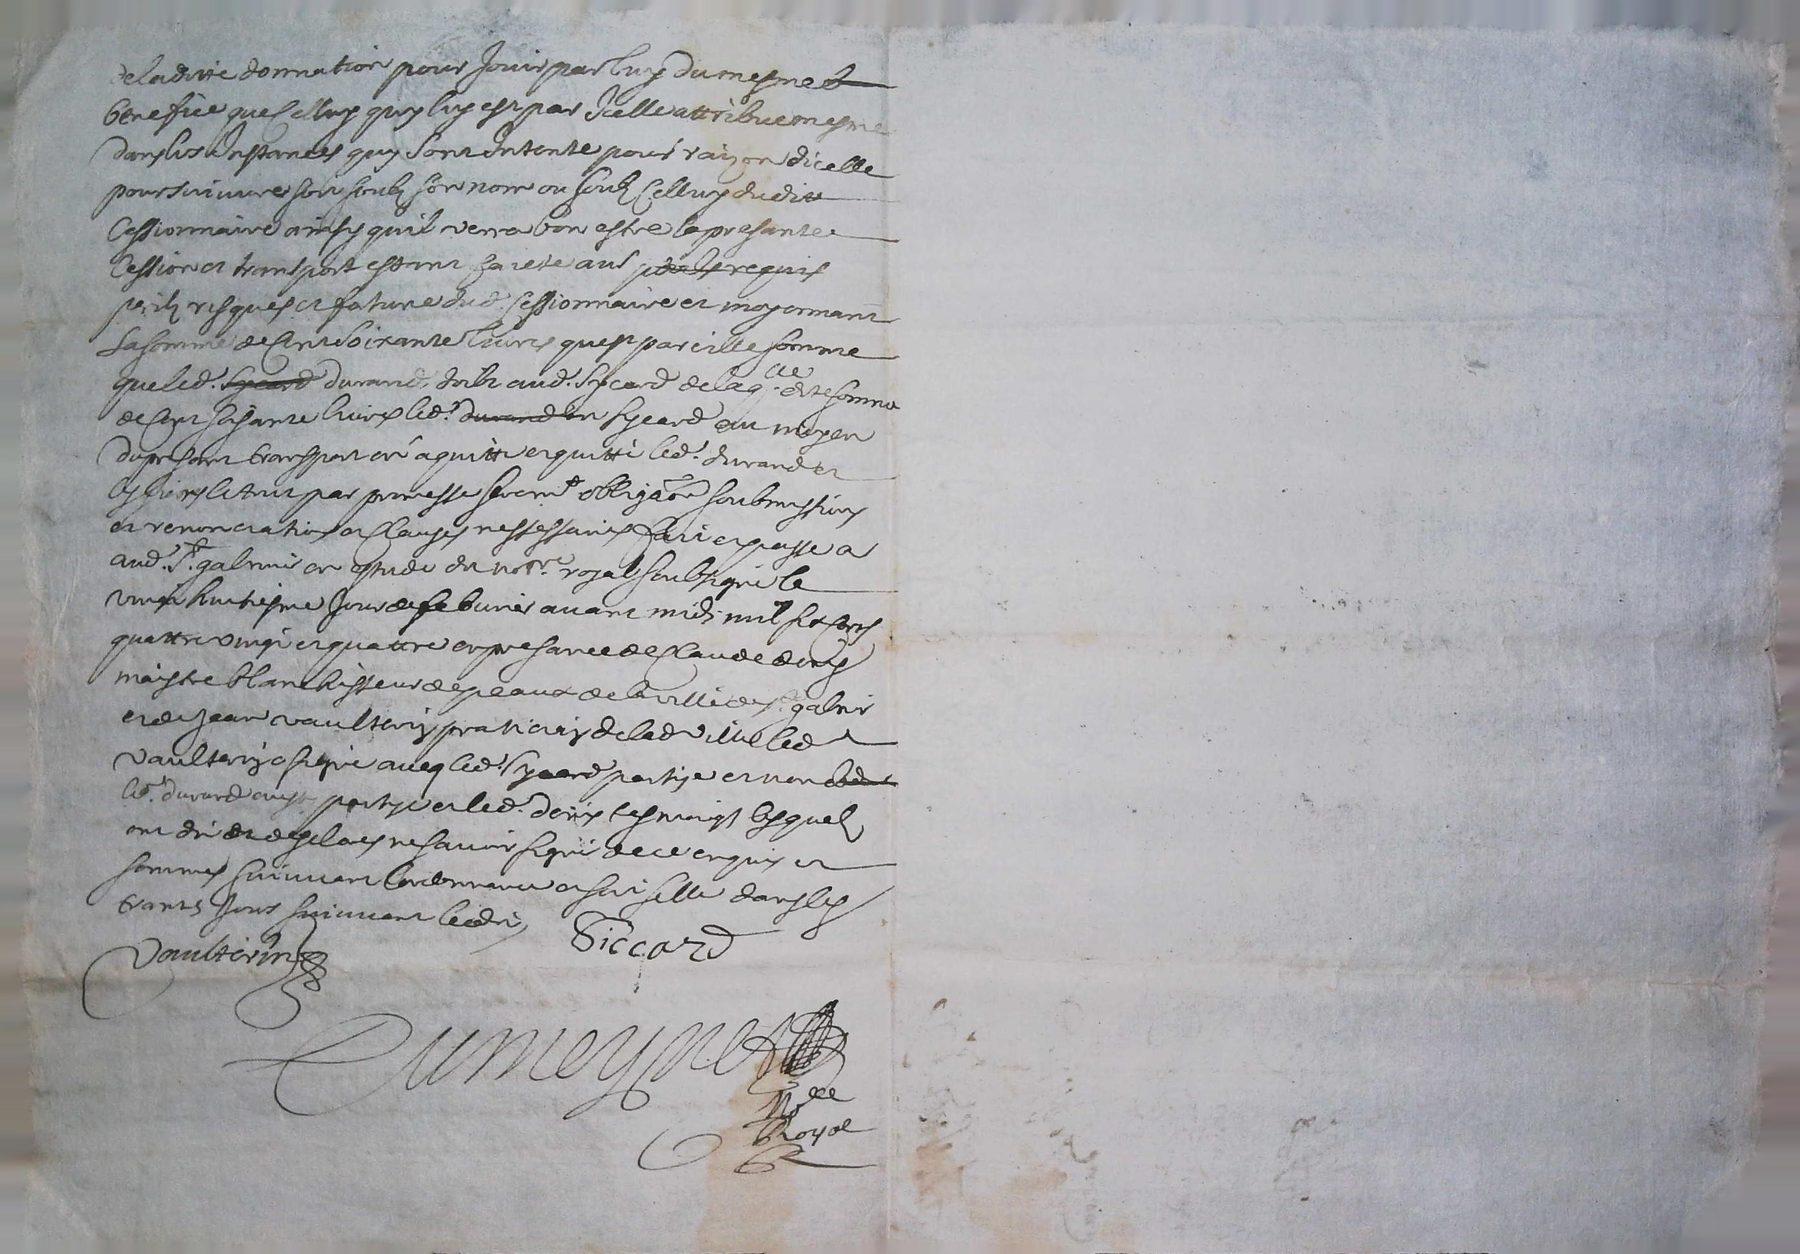 deladitte donnation pour Jouir par luy du mesme
benefice que Celluy quy luy est par Icelle attribue mesme
dans les Instances quy sont Intente pour raizon dicelle
poursuivre soit soubz son nom ou soubz Celluy dudit
Cessionnaire ainsy quil verra bon estre la presante
Cession et transport estant faicte aus
perilz risques et fortune dud. Cessionnaire et moyennant
la somme de Cent Soixante livres quest pareille somme
que led. Sycard durand doibt aud. Sycard de laq.lle ditte somme
de Cent soixante livres led. durand Sycard au moyen
du presant transport en a quitte et quitte led. durand et
les siens par promesse serem.t obligaon soubmissions
et renonciations et Clauses nessessaires fait et passe a
aud. St. galmier en estude du no.re royal soubsigne le
vingt huitiesme Jour de feburier avant midi mil six cents
quattre vingt et quattre en presance de Claude
maistre blanchisseur de peaux de la ville de St. galmier
et de Jean vaulterin praticien de lad ville led
vaulterin a signe avecq led. Sycard partye et non
led. durand aussy partye et led. tesmoingt lesquels
ont dit et desclaré ne savoir signer de ce enquis et
sommes suivant lordonnance et sera selle dans les
trante Jours suivant ledit
Vaulterin Siccard
Dumeynet
No.re
Royal